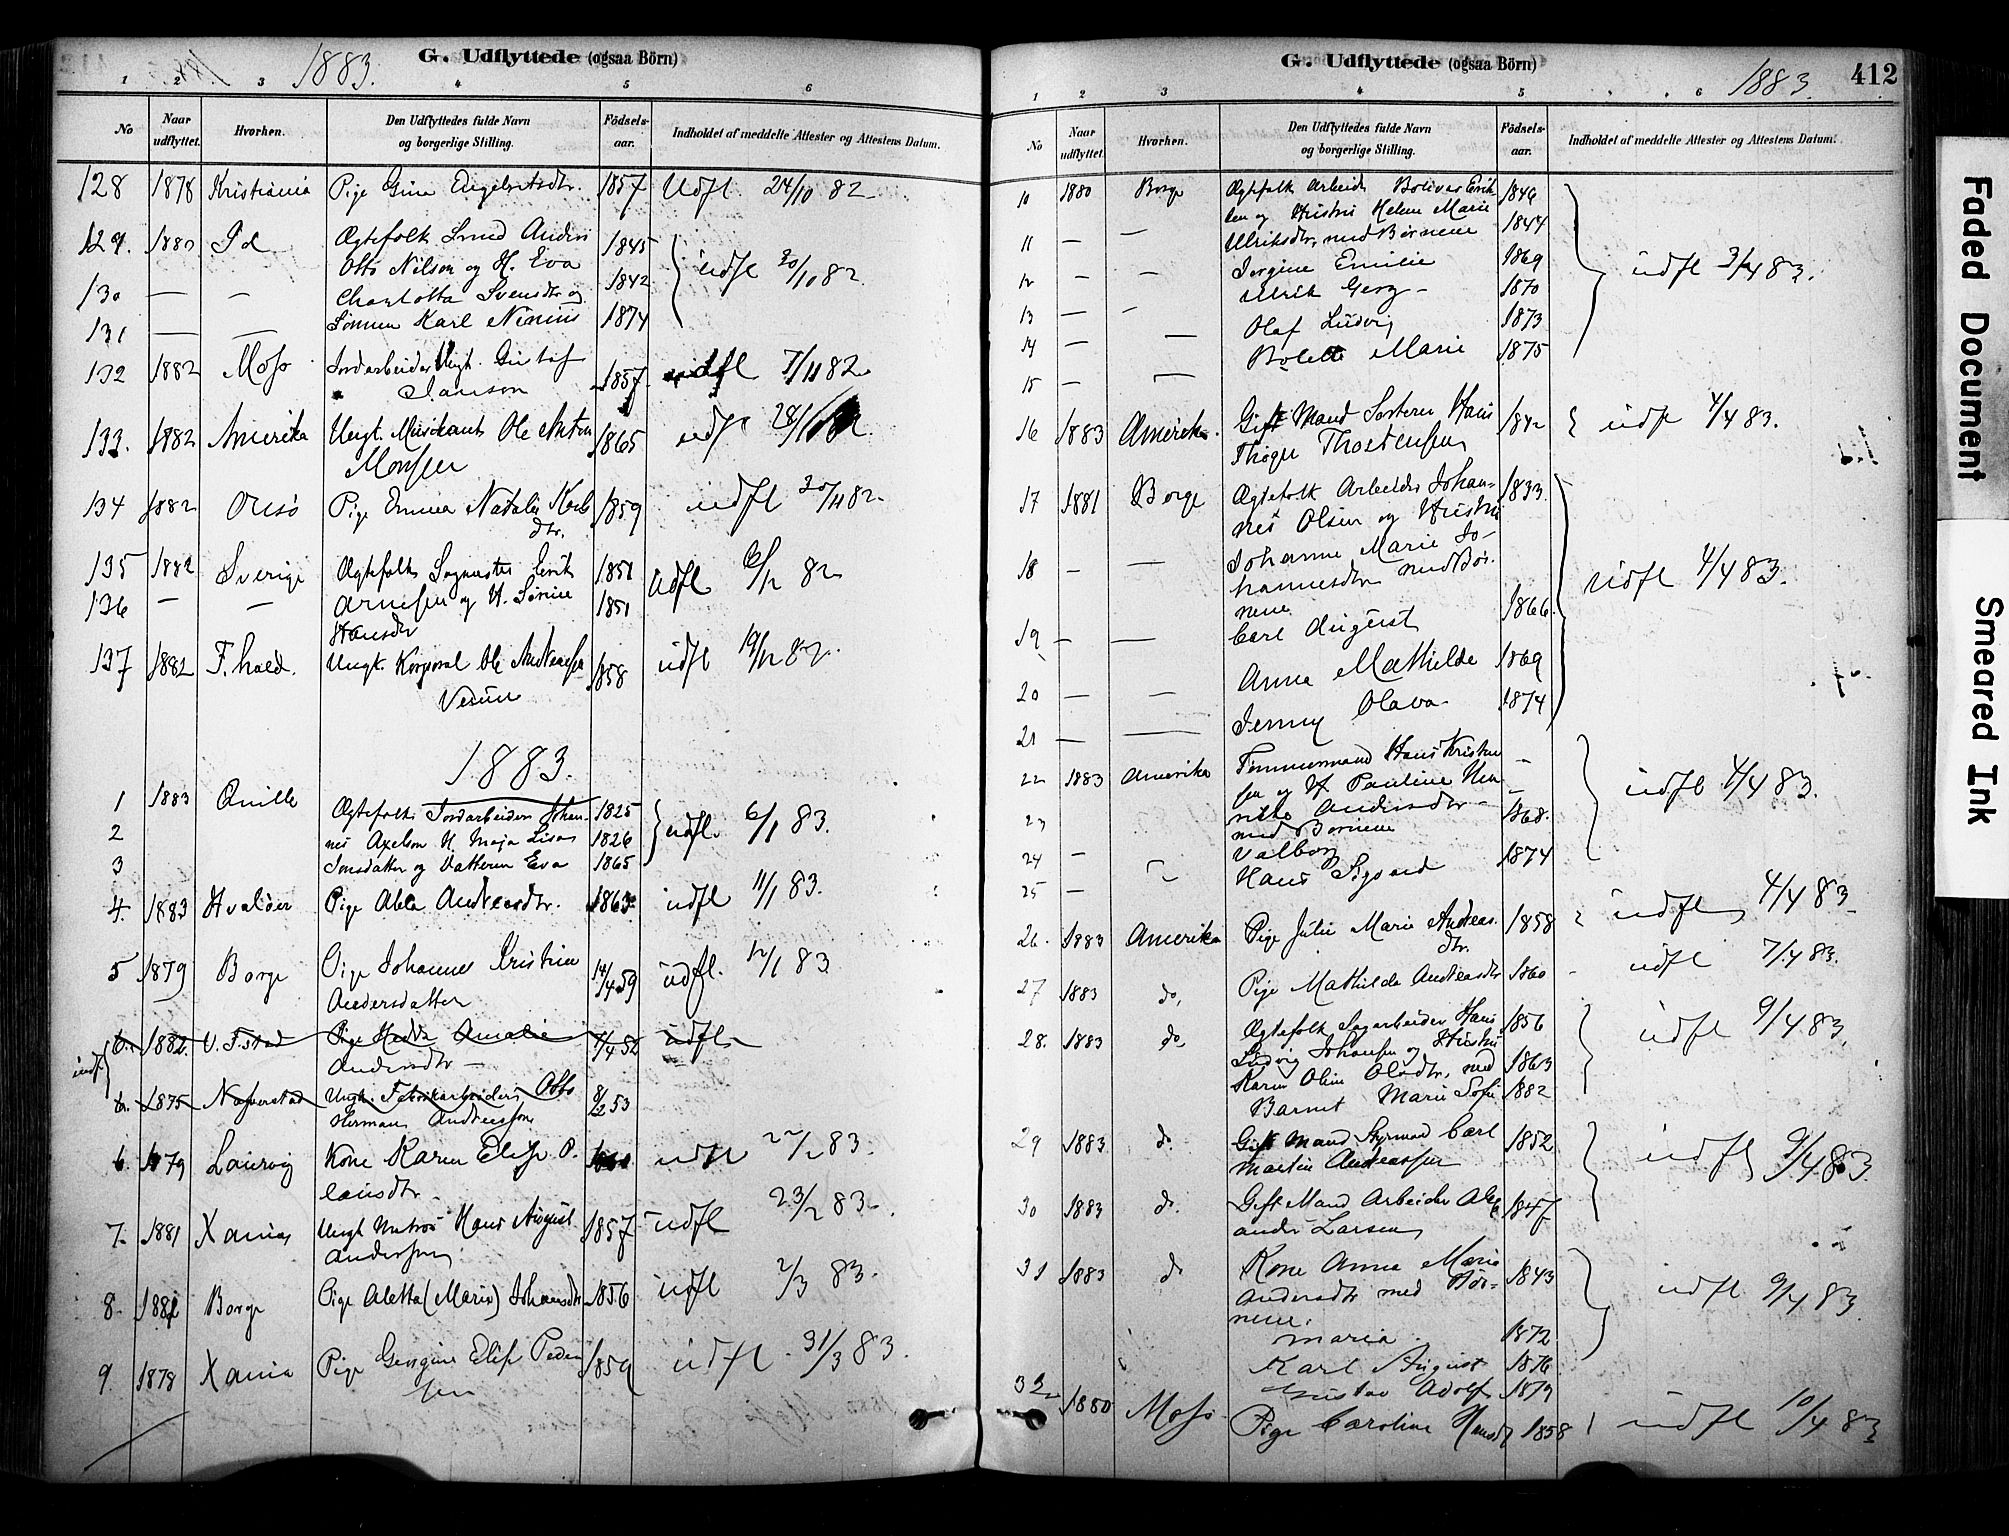 1883.
G. Udflyttede (ogsaa Börn)
1 2 3 4 5 6
No
Naar udflyttet.
Hvorhen.
Den Udflyttedes fulde Navn og borgerlige Stilling.
Födsels-aar.
Indholdet af meddelte Attester og Attestens Datum.
128 1878 Kristiania Pige Gina Engebretsdtr. 1857 Udfl. 24/10 82
129. 1882 Id Ægtefolk Smed Anders 1845
Otto Nilson og H. Eva 1842 udfl 30/10 82.
130 — — Charlotta Svensdtr og
131 — — Sönnen Karl 1874
132 1882 Moss Jordarbeider Ungk. Gustaf
Janson 1857 udfl 7/11 82
133. 1882 Amerika Ungk. Musikant Ole Anton 1865 udfl
Monssen
134 1882 Onsö Pige Emma Natalie Karls 1859 udfl 30/11 82.
dtr.
135 1882 Sverige Ægtefolk Sagmester Erik 1851 udfl 6/12 82
136 — — Arnesen og H. Sörine 1851
Hansdtr
137 1882 F.hald. Ungk. Korporal Ole Andreassen 1858 udfl 19/12 82.
1883.
1 1883 Qville Ægtefolk Jordarbeider Johan- 1825
2 nes Axelson H. Maja Lisa 1826 udfl. 6/1 83.
3 Jonsdatter og Datteren Eva 1865
4. 1883 Hvalöer Pige Abla Andreasdtr. 1863 udfl 11/1 83.
5 1879 Borge Pige Johanne Kristine 14/4 59 udfl. 12/1 83
Andersdatter
6. 1882 V. F.stad Pige Hedda Amalie 52 udfl
Andersdtr —
6. 1875 Naverstad Ungk. Fabrikarbeider, Otto 8/2 53
Herman Andreassen
6. 1879 Laurvig Kone Karen Elise P. udfl 22/2 83.
lausdtr
7. 1881 Xania Ungk Matros Hans August 1857 udfl 23/2 83.
Anderssen
8. 1881 Borge Pige Aletta (Marie) Johansdtr 1856 udfl 2/3 83.
9. 1878 Xania Pige Georgine Elise Peder 1859 udfl 31/3 83.
sen
G. Udflyttede (ogsaa Börn)
1883.
412
1 2 3 4 5 6
No
Naar udflyttet
Hvorhen.
Den Udflyttedes fulde Navn og borgerlige Stilling.
Födsels-aar.
Indholdet af meddelte Attester og Attestens Datum.
10 1880 Borge Ægtefolk Arbeider Bolivar Erik 1846
sen og Hustru Helene Marie 1844
11 — — Ulriksdtr, med Börnene
12 — — Jorgine Emilie 1869 udfl 3/4 83.
Ulrik Georg — 1870
13 — — Olaf Ludvig 1873
14 — — Bolette Marie 1875
15 — —
16 1883 Amerika. Gift Mand Sorterer Hans 1842 udfl 4/4 83.
Thøger Thostensen
17 1881 Borge Ægtefolk Arbeider Johan- 1833
nes Olsen og Hustru
18 — — Johanne Marie Jo- udfl 4/4 83.
hannesdtr med Bör-
nene 1866
19 — — Carl August
Anna Mathilde 1869
20 — — Jenny Olava 1874
21 — —
22 1883 Amerika Tømmermand Hans Kristen —
sen og H. Pauline Hen — udfl 4/4 83.
23 rikke Andersdtr — 1868.
med Börnene
24 — Valborg 1874
25 — Hans Sigvard
26. 1883 Amerika Pige Julie Marie Andreas. 1858 udfl 4/4 83
dtr.
27 1883 do. Pige Mathilde Andreasdtr 1860 udfl 7/4 83.
28. 1883 do Ægtefolk Sagarbeider Hans 1856 udfl 9/4 83.
Ludvig Johansen og Hustru
Karen Oline Olsdtr, med 1863
Barnet Marie Sofie 1882
29 1883. do. Gift Mand Styrmand Carl 1852 udfl 9/4 83.
Martin Andreassen
30 1883 do. Gift Mand Arbeider Alex 1847
ander Larsen
31 1883 do Kone Anna Maria 1843
Andersdtr med Bör- udfl 9/4 83
nene.
Maria 1872
Karl August 1876
Gustav Adolf 1879
32 1880 Moss Pige Caroline Hansd 1858 udfl 10/4 83
Faded Document
Smeared Ink